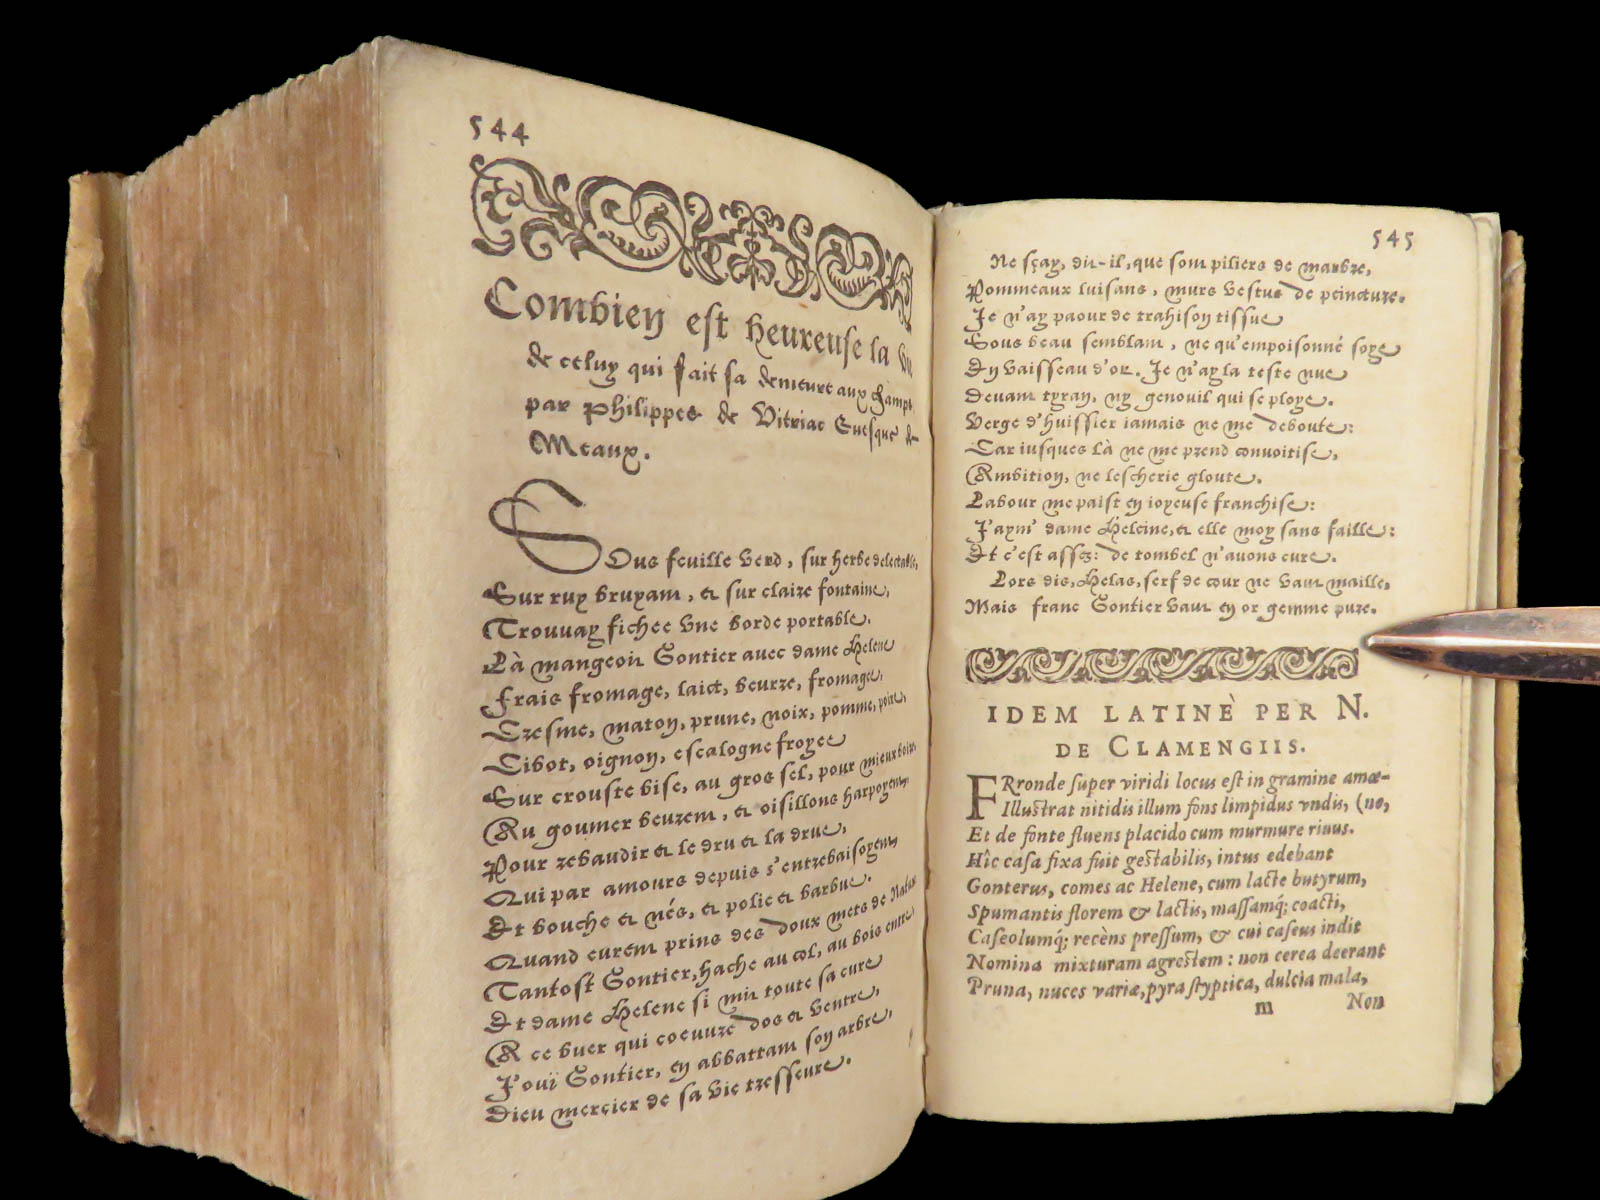 544
Combien est heureuse la vie
de celuy qui fait sa demeure aux champs
par Philippes de Vitriac Euesque de
Meaux.
SOus feuille verd, sur herbe delectable,
Sur ruy bruyant, & sur claire fontaine,
Trouuay fichee vne borde portable.
Là mangeoit Gontier auec dame Helene
Frais fromage, laict, beurre, fromagee,
Cresme, maton, prune, noix, pomme, poire,
Cibot, oignon, escalogne froyee
Sur crouste bise, au gros sel, pour mieux boire.
Au goumer beurent, & oisillons harpoyent
Pour rebaudir & le dru & la drue,
Qui par amours depuis s'entrebaisoyent
Et bouche & nés, & polie & barbue.
Quand eurent prins des doux mets de Nature
Tantost Gontier, hache au col, au bois entre
Et dame Helene si mit toute sa cure
A ce buer qui coeuure dos & ventre,
J'ouï Gontier, en abbattant son arbre,
Dieu mercier de sa vie tresseure.
545
Ne sçay, dit-il, que sont piliers de marbre,
Pommeaux luisans, murs vestus de peincture.
Je n'ay paour de trahison tissue
Sous beau semblant, ne qu'empoisonné soye
En vaisseau d'or. Je n'ay la teste nue
Deuant tyran, ny genouil qui se ploye.
Verge d'huissier iamais ne me deboute:
Car iusques là ne me prend conuoitise,
Ambition, ne lescherie gloute.
Labour me paist en ioyeuse franchise:
J'aym' dame Heleine, & elle moy sans faille:
Et c'est assez: de tombel n'auons cure.
Lors dis, Helas, serf de cour ne vaut maille,
Mais franc Gontier vaut en or gemme pure.
IDEM LATINÈ PER N.
DE CLAMENGIIS.
FRronde super viridi locus est in gramine amœ-
Illustrat nitidis illum fons limpidus vndis, (no,
Et de fonte fluens placido cum murmure riuus.
Hîc casa fixa fuit gestabilis, intus edebant
Gonterus, comes ac Helene, cum lacte butyrum,
Spumantis florem & lactis, massamq́; coacti,
Caseolumq́; recèns pressum, & cui caseus indit
Nomina mixturam agrestem: non cerea deerant
Pruna, nuces variæ, pyra styptica, dulcia mala,
m Non